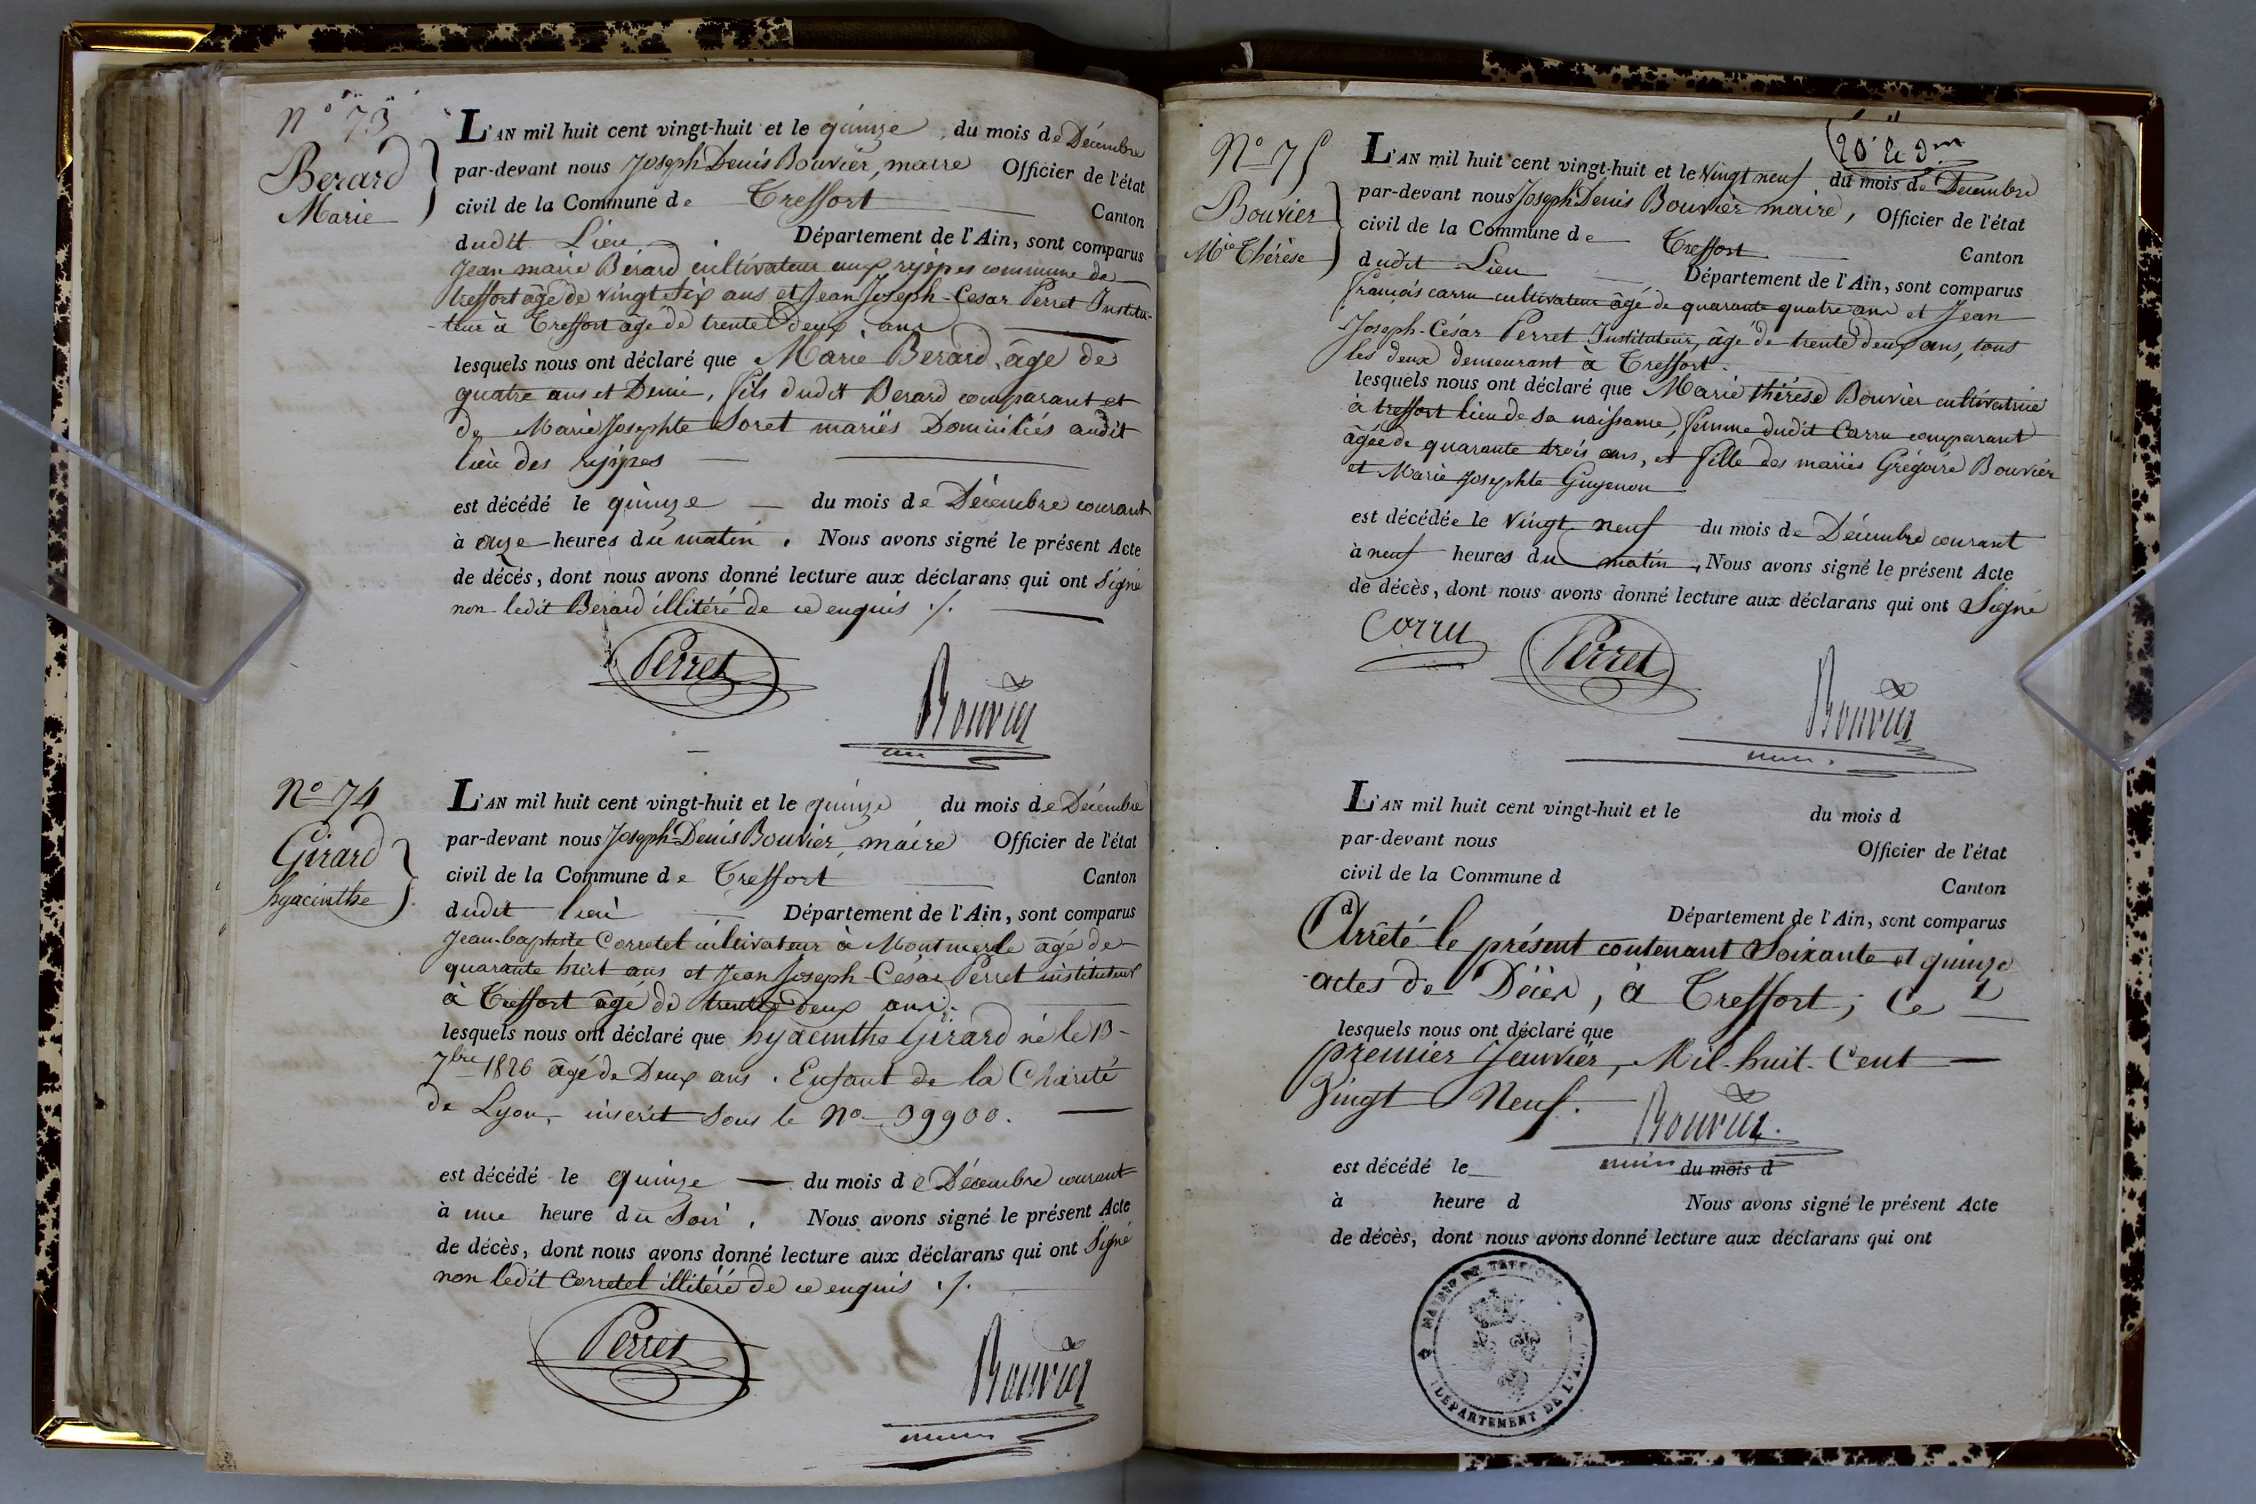 N° 73
Berard
Marie
L'AN mil huit cent vingt-huit et le quinze du mois de Décembre
par-devant nous Joseph Denis Bouvier, maire Officier de l'état
civil de la Commune de Treffort Canton
dudit Lieu Département de l'Ain, sont comparus
Jean marie Bérard cultivateur aux commune de
treffort âgé de vingt six ans et Jean Joseph-Cesar Perret Institu-
-teur à Treffort âgé de trente deux ans
lesquels nous ont déclaré que Marie Berard, âge de
quatre ans et Demi, fils dudit Berard comparant et
de Marie Josephte Soret mariés Domiciliés audit
lieu des
est décédé le quinze du mois de Décembre courant
à onze heures du matin. Nous avons signé le présent Acte
de décès, dont nous avons donné lecture aux déclarans qui ont Signé
non ledit Berard illitéré de ce enquis ./.
Perret
Bouvier
N° 74
Girard
hyacinthe
L'AN mil huit cent vingt-huit et le quinze du mois de Décembre
par-devant nous Joseph-Denis Bouvier, maire Officier de l'état
civil de la Commune de Treffort Canton
dudit lieu Département de l'Ain, sont comparus
Jean-baptiste Corretel cultivateur à Montmerle âgé de
quarante huit ans et Jean Joseph-César Perret instituteur
à Treffort âgé de trente deux ans.
lesquels nous ont déclaré que hyacinthe Girard né le 13
7bre 1826 âgé de Deux ans. Enfant de la Charité
de Lyon, inscrit sous le N° 39900.
est décédé le quinze du mois de Décembre courant
à une heure du Soir, Nous avons signé le présent Acte
de décès, dont nous avons donné lecture aux déclarans qui ont Signé
non ledit Corretel illitéré de ce enquis ./.
Perret
Bouvier
N° 75
Bouvier
Mie Thérèse
L'AN mil huit cent vingt-huit et le Vingt neuf du mois de Décembre
par-devant nous Joseph Denis Bouvier maire, Officier de l'état
civil de la Commune de Treffort Canton
dudit Lieu Département de l'Ain, sont comparus
françois carru cultivateur âgé de quarante quatre ans et Jean
Joseph-César Perret Instituteur, âgé de trente deux ans, tous
les deux demeurant à Treffort.
lesquels nous ont déclaré que Marie thérèse Bouvier cultivatrice
à treffort lieu de sa naissance, femme dudit Carru comparant
âgée de quarante trois ans, et fille des mariés Grégoire Bouvier
et Marie Josephte Guyenon
est décédée le Vingt neuf du mois de Décembre courant
à neuf heures du matin, Nous avons signé le présent Acte
de décès, dont nous avons donné lecture aux déclarans qui ont Signé
Corru
Perret
Bouvier
L'AN mil huit cent vingt-huit et le du mois d
par-devant nous Officier de l'état
civil de la Commune d Canton
d Département de l'Ain, sont comparus
Arrêté le présent contenant Soixante et quinze
actes de Décès, à Treffort, Ce
lesquels nous ont déclaré que
premier Janvier, Mil-huit-Cent
Vingt Neuf.
Bouvier
est décédé le du mois d
à heure d Nous avons signé le présent Acte
de décès, dont nous avons donné lecture aux déclarans qui ont
MAIRIE DE TREFFORT
DÉPARTEMENT DE L'AIN